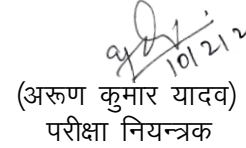 10/2/2
(अरूण कुमार यादव)
परीक्षा नियन्त्रक